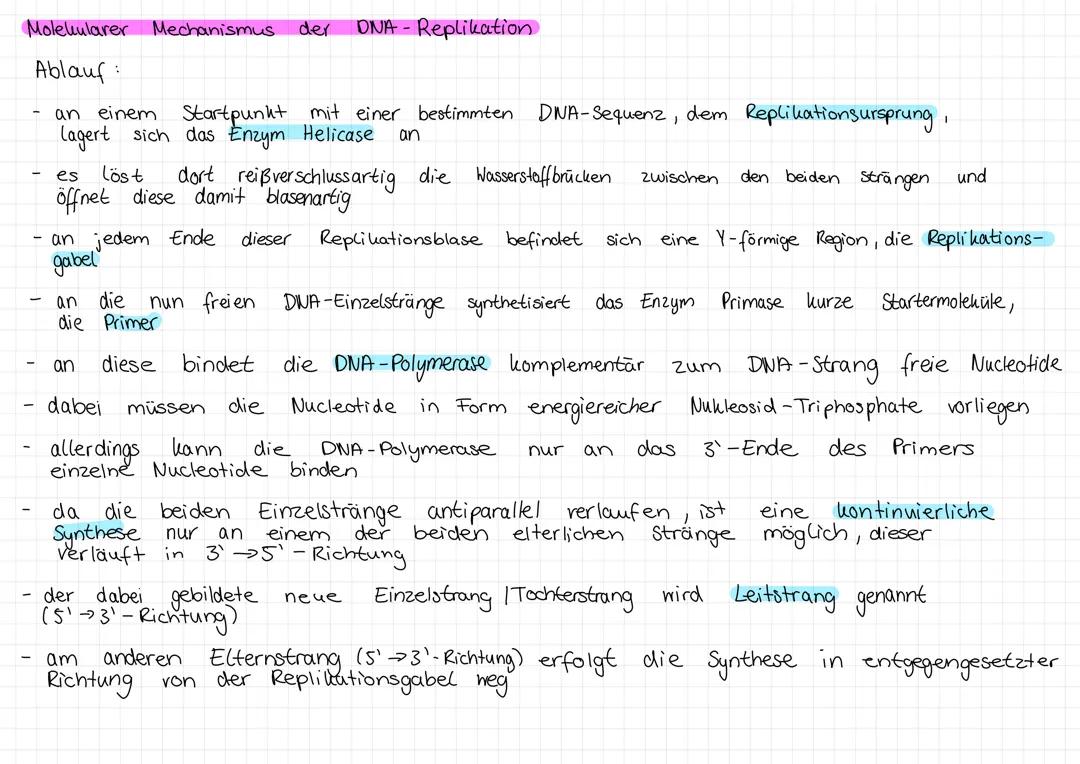 Molekularer Mechanismus der DNA-Replikation
Ablauf:
- an einem Startpunkt mit einer bestimmten DNA-Sequenz, dem Replikationsursprung,
lagert sich das Enzym Helicase an
- es löst dort reißverschlussartig die Wasserstoffbrücken zwischen den beiden Strängen und
öffnet diese damit blasenartig
- an jedem Ende dieser Replikationsblase befindet sich eine Y-förmige Region, die Replikations-
gabel
- an die nun freien DNA-Einzelstränge synthetisiert das Enzym Primase kurze Startermoleküle,
die Primer
- an diese bindet die DNA-Polymerase komplementär zum DNA-Strang freie Nucleotide
- dabei müssen die Nucleotide in Form energiereicher Nukleosid-Triphosphate vorliegen
- allerdings kann die DNA-Polymerase nur an das 3`-Ende des Primers
einzelne Nucleotide binden
- da die beiden Einzelstränge antiparallel verlaufen, ist eine kontinuierliche
Synthese nur an einem der beiden elterlichen Stränge möglich, dieser
verläuft in 3`→5`-Richtung
- der dabei gebildete neue Einzelstrang/Tochterstrang wird Leitstrang genannt
(5'→3'-Richtung)
- am anderen Elternstrang (5`→3`-Richtung) erfolgt die Synthese in entgegengesetzter
Richtung von der Replikationsgabel weg